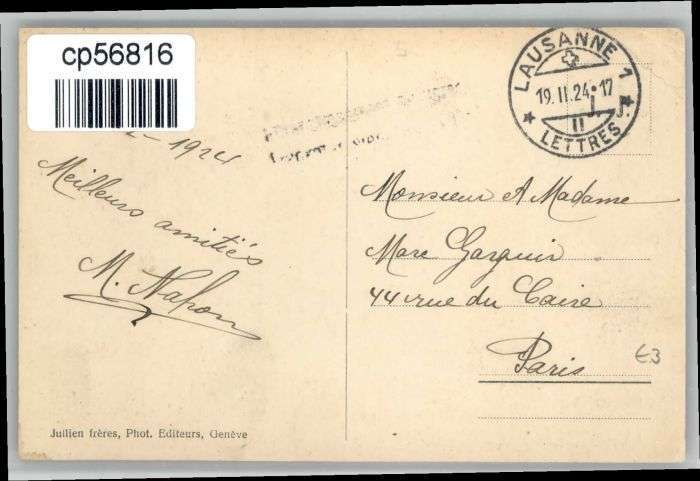 cp56816
LAUSANNE 1
19.II.24•17
LETTRES
1924
Meilleurs amitiés
M. Nahon
Monsieur & Madame
Marc
44 rue du Caire
Paris
€3
Jullien frères, Phot. Editeurs, Genève